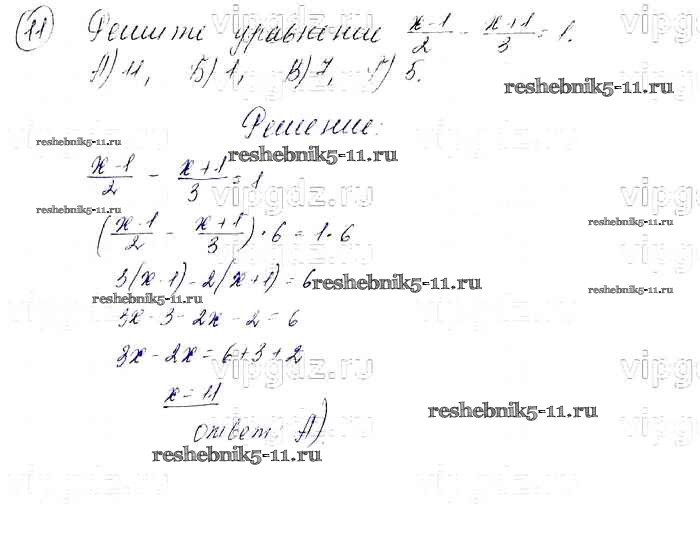 11 Решите уравнение (x-1)/2 - (x+1)/3 = 1.
А) 11, Б) 1, В) 7, Г) 5.
reshebnik5-11.ru
Решение:
reshebnik5-11.ru
reshebnik5-11.ru
(x-1)/2 - (x+1)/3 = 1
vipgdz.ru
reshebnik5-11.ru
reshebnik5-11.ru
((x-1)/2 - (x+1)/3) · 6 = 1 · 6
3(x-1) - 2(x+1) = 6
reshebnik5-11.ru
reshebnik5-11.ru
reshebnik5-11.ru
3x - 3 - 2x - 2 = 6
3x - 2x = 6 + 3 + 2
vipgdz.ru
x = 11
reshebnik5-11.ru
ответ: А)
reshebnik5-11.ru
vipgdz.ru